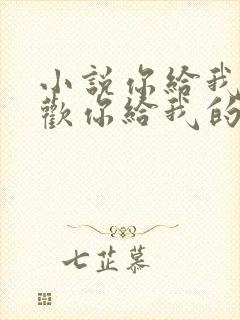 小說你給我
歡你給我的
七芷慕